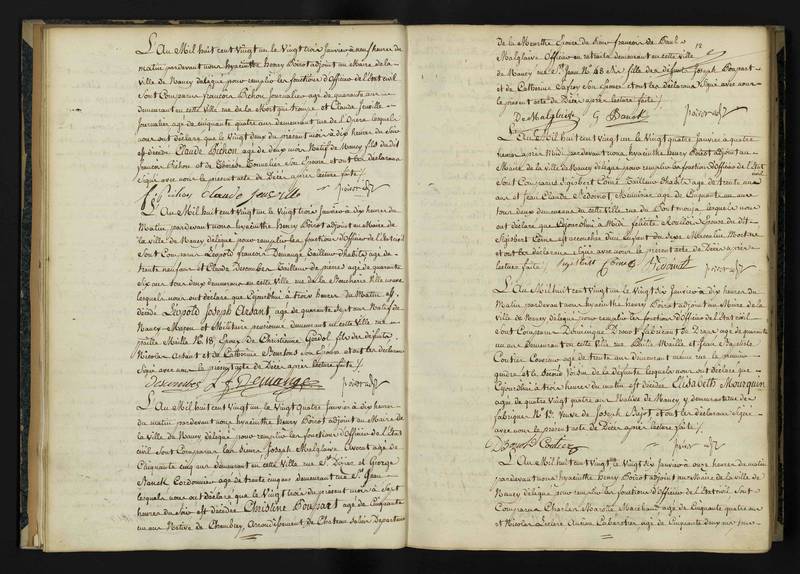 L'An Mil huit cent vingt un le vingt trois janvier à neuf heures du
matin pardevant nous hyacinthe henry Poirot adjoint au Maire de la
ville de Nancy délégué pour remplir les fonctions d'Officier de l'Etat civil
sont Comparus françois Pichon journalier agé de quarante ans
demeurant en cette ville rue de la et Claude
journalier agé de quarante quatre ans demeurant rue de l'Opera lesquels
nous ont déclaré que le vingt deux du présent mois à dix heures du soir
est décédé Claude Pichon agé de deux mois natif de Nancy fils du dit
françois Pichon et de son Epouse et ont les déclarans
signé avec nous le présent acte de Décès après lecture faite /.
Pichon Claude
L'An Mil huit cent vingt un le vingt trois janvier à dix heures du
Matin pardevant nous hyacinthe henry Poirot adjoint au Maire de
la ville de Nancy délégué pour remplir les fonctions d'Officier de l'Etat civil
sont Comparus Leopold françois Demange Tailleur d'habits agé de
trente neuf ans et Claude Tailleur de pierre agé de quarante
six ans tous deux demeurans en cette ville rue de la
lesquels nous ont déclaré que Cejourdhui à trois heures du Matin est
décédé Léopold Joseph Arsant agé de quarante sept ans Natif de
Nancy Maçon et Militaire pensionné demeurant en cette ville rue
No. 18 Epoux de Christienne fils des defunts
Nicolas Arsant et de Catherine son Epouse et ont les déclarans
signé avec nous le présent acte de Décès après lecture faite /.
Demange
L'An Mil huit cent vingt un le vingt quatre janvier à dix heures
du matin pardevant nous hyacinthe henry Poirot adjoint au Maire de
la ville de Nancy délégué pour remplir les fonctions d'Officier de l'Etat
civil sont Comparus les sieurs Joseph Malglaive Avocat agé de
Cinquante cinq ans demeurant en cette ville rue St. Dizier et George
Banck Cordonnier agé de trente ans demeurant rue St. Jean
lesquels nous ont déclaré que le vingt trois du présent mois à sept
heures du soir est décédée Christine Poupart agé de Cinquante
un ans Native de Chambrey, Arrondissement de Chateau Salin Departement
12
de la Meurthe Epouse du sieur françois de Paul
Malglaive Officier en retraite demeurant en cette ville
de Nancy rue St. Jean No. 48 fille des défunts Joseph Poupart
et de Catherine son Epouse et ont les déclarans signé avec nous
le présent acte de Décès après lecture faite /.
De Malglaive G Banck
L'An Mil huit cent vingt un le vingt quatre janvier à quatre
heures après Midi pardevant nous hyacinthe henry Poirot adjoint au
Maire de la ville de Nancy délégué pour remplir les fonctions d'Officier de l'Etat civil
sont Comparus Sigisbert Côme Tailleur d'habits agé de trente
ans et Jean Claude Menuisier agé de Cinquante un ans
tous deux demeurans en cette ville rue du Pont lesquels nous
ont déclaré que Cejourdhui à Midi félicité Epouse du dit
Sigisbert Côme est accouchée d'un Enfant du sexe Masculin
et ont les déclarans signé avec nous le présent acte de Décès après
lecture faite /. Sigisbert Côme
L'An Mil huit cent vingt un le vingt six janvier à dix heures du
Matin pardevant nous hyacinthe henry Poirot adjoint au Maire de la
ville de Nancy délégué pour remplir les fonctions d'Officier de l'Etat civil
sont Comparus Dominique fabricant de Draps agé de quarante
un ans demeurant en cette ville rue et Jean Baptiste
agé de trente ans demeurant même rue le premier
et le second voisin de la défunte lesquels nous ont déclaré que
Cejourdhui à trois heures du matin est décédée Elisabeth Mourquin
agée de vingt quatre ans Native de Nancy y demeurant rue des
fabriques No. veuve de Joseph et ont les déclarans signé
avec nous le présent acte de Décès après lecture faite /.
L'An Mil huit cent vingt un le vingt six janvier à onze heures du matin
pardevant nous hyacinthe henry Poirot adjoint au Maire de la ville de
Nancy délégué pour remplir les fonctions d'Officier de l'Etat civil sont
Comparus Charles Marchand agé de Cinquante quatre ans
et Nicolas Ancien Cabaretier agé de Cinquante deux ans